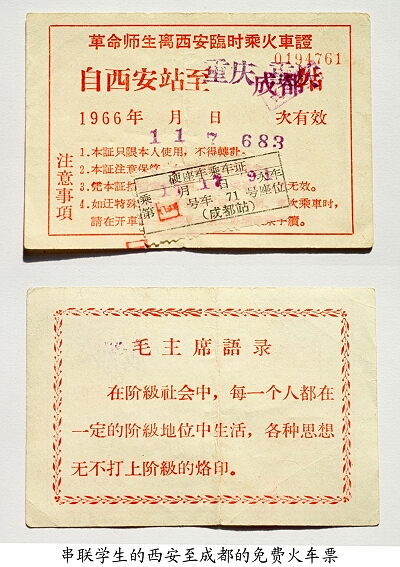 革命师生离西安臨时乘火車證
0194761
自西安站至重庆成都站
1966年 月 日 次有效
11 7 683
注意事項
1.本証只限本人使用，不得轉
2.本証注意保管
3.凭本証 无效。
4.如迂特殊 次乘車时，
請在开車 手續。
硬座车乘车证
月 日 火车
乘第 号车 71 号座位
(成都站)
毛主席語录
在阶級社会中，每一个人都在
一定的阶級地位中生活，各种思想
无不打上阶級的烙印。
串联学生的西安至成都的免费火车票